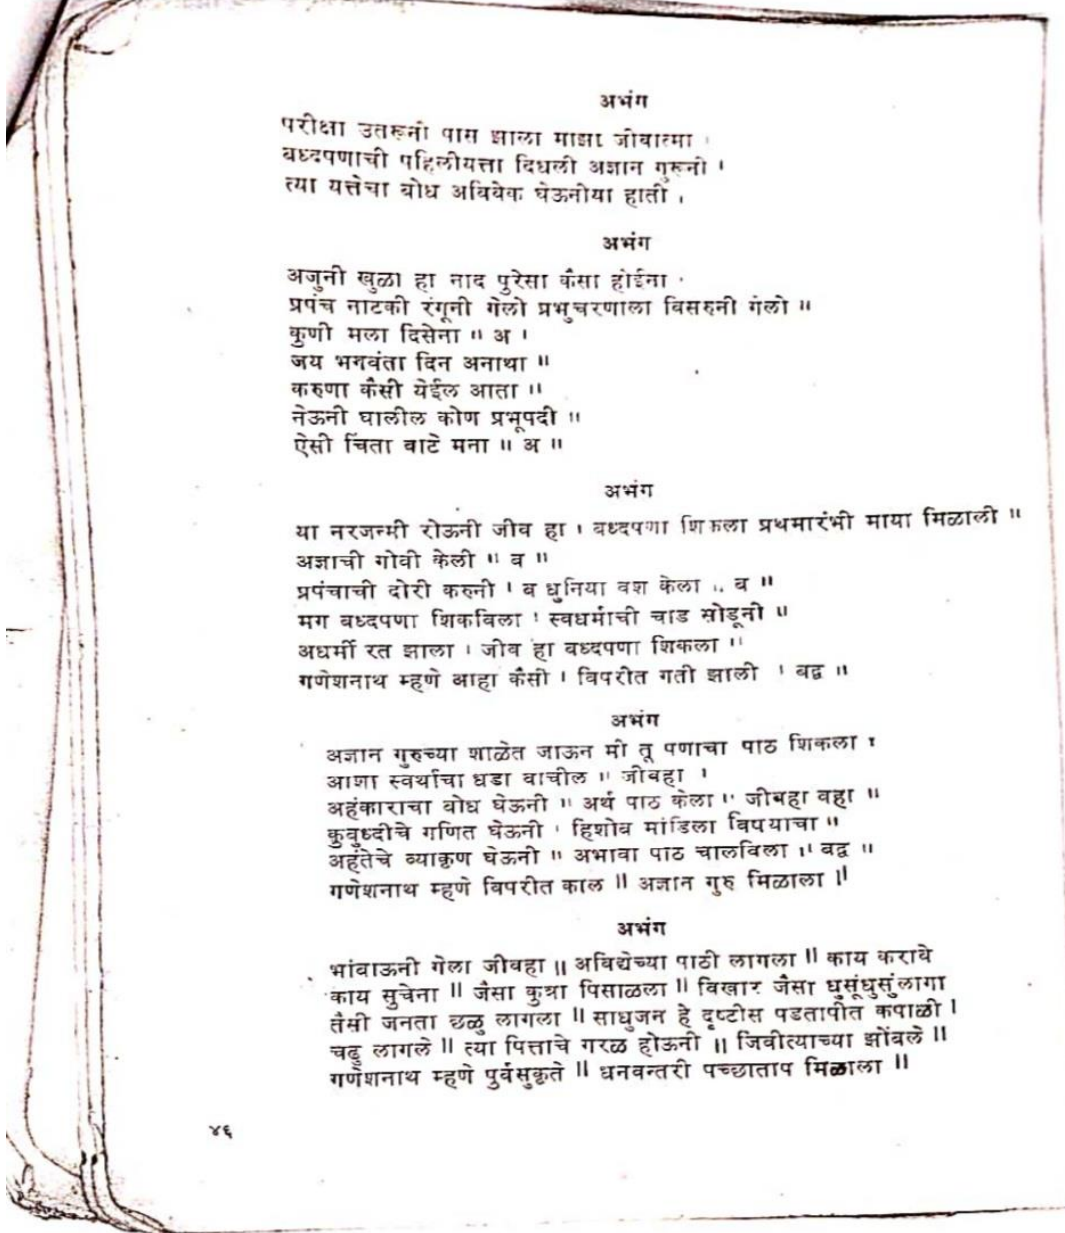 अभंग
परीक्षा उतरूनी पास झाला माझा जीवात्मा ।
बध्दपणाची पहिलीयत्ता दिधली अज्ञान गुरूनी ।
त्या यत्तेचा बोध अविवेक घेऊनीया हाती ।
अभंग
अजुनी खुळा हा नाद पुरेसा कैसा होईना ·
प्रपंच नाटकी रंगूनी गेलो प्रभुचरणाला विसरुनी गेलो ॥
कुणी मला दिसेना ॥ अ ।
जय भगवंता दिन अनाथा ॥
करुणा कैसी येईल आता ॥
नेऊनी घालील कोण प्रभूपदी ॥
ऐसी चिंता वाटे मना ॥ अ ॥
अभंग
या नरजन्मी रोऊनी जीव हा । बध्दपणा शिकला प्रथमारंभी माया मिळाली ॥
अज्ञाची गोवी केली ॥ ब ॥
प्रपंचाची दोरी करुनी । ब धुनिया वश केला .. ब ॥
मग बध्दपणा शिकविला । स्वधर्माची चाड सोडूनी ॥
अधर्मी रत झाला । जीव हा बध्दपणा शिकला ॥
गणेशनाथ म्हणे आहा कैसी । विपरीत गती झाली । बद्व ॥
अभंग
अज्ञान गुरुच्या शाळेत जाऊन मी तू पणाचा पाठ शिकला ।
आशा स्वर्थाचा धडा वाचील ॥ जीवहा ।
अहंकाराचा बोध घेऊनी ॥ अर्थ पाठ केला ॥ जीवहा वहा ॥
कुबुध्दीचे गणित घेऊनी । हिशोब मांडिला विषयाचा ॥
अहंतेचे व्याकृण घेऊनी ॥ अभावा पाठ चालविला ॥ बद्व ॥
गणेशनाथ म्हणे विपरीत काल ॥ अज्ञान गुरु मिळाला ॥
अभंग
भांबाऊनी गेला जीवहा ॥ अविद्येच्या पाठी लागला ॥ काय करावे
काय सुचेना ॥ जैसा कुत्रा पिसाळला ॥ विखार जैसा धुसूंधुसुंलागा
तैसी जनता छळु लागला ॥ साधुजन हे दृष्टीस पडतापीत कपाळी ।
चढु लागले ॥ त्या पित्ताचे गरळ होऊनी ॥ जिवीत्याच्या झोंबले ॥
गणेशनाथ म्हणे पुर्वसुकृते ॥ धनवन्तरी पच्छाताप मिळाला ॥
४६